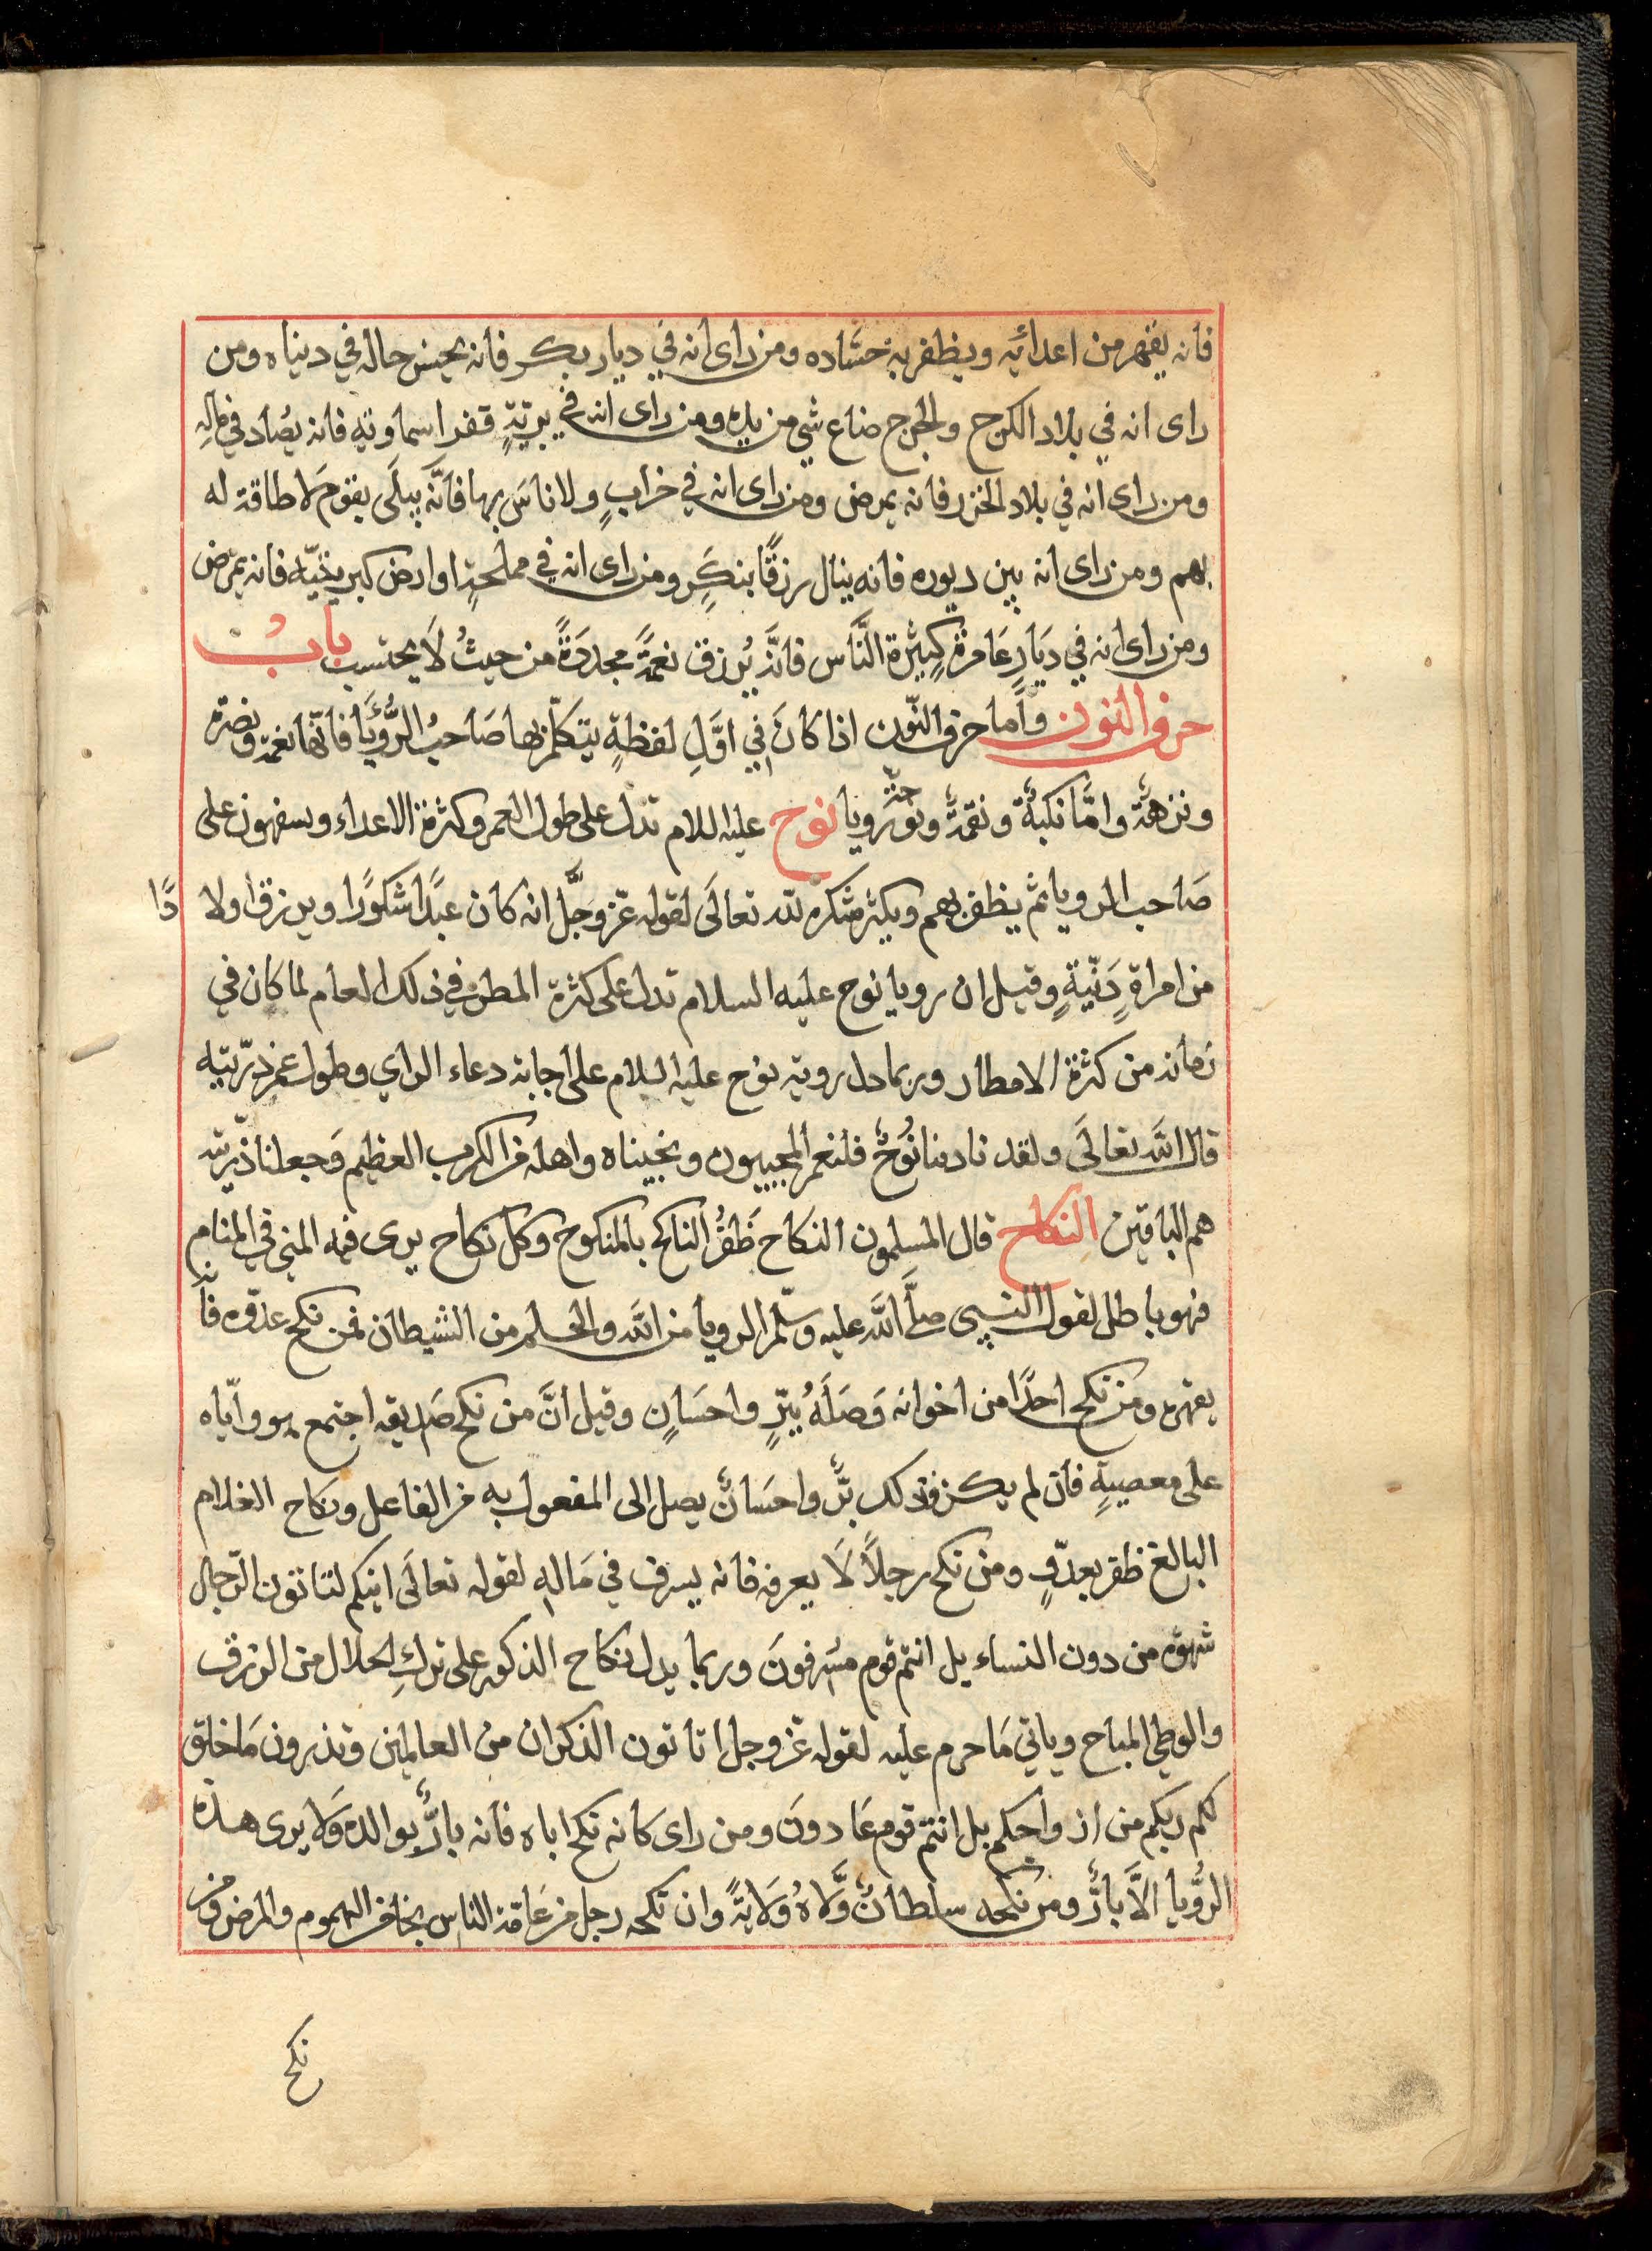 فانه يقهر من اعدائه ويظفر به حسَّاده ومن راى انه في ديار بكر فانه يحسن حاله في دنياه ومن
راى انه في بلاد الكرج والخرج ضاع شي من يده ومن راى انه في بريّةٍ قفر اسماوته فانه يصُاد في مالهِ
ومن راى انه في بلاد الخزر فانه يمرض ومن راى انه في خرابٍ ولا ناسَ بها فانّه يبلَى بقوم لا طاقة له
بهم ومن راى انه بين ديوره فانه ينال رزقًا بنكَدٍ ومن راى انه في مملحةٍ او ارض كبريتيّه فانه يمرض
ومن راى انه في دَيَارِ عَامرة كبيْرة النَّاس فانّه يُرزق نعمَةً مجددَةً من حيثُ لَا يحتسب بابُ
حرف النون وأما حرف النّون اذا كانَ في اوَّلِ لفظةٍ يتكلّم بها صَاحبُ الرُّؤيَا فانّها نعمة ونضرة
ونزهةٌ وامَّا نكبةٌ ونقمةٌ ونوحةٌ رويا نوح عليه اللام تدل على طول العمر وكثرة الاعداء ويسفهون على
صَاحب الرويا ثم يظفر بهم ويكثر شكره لله تعالَى لقوله عز وجلَّ انه كان عبدًا شكورًا ويرزق اولا دًا
من امراةٍ دَنّيةٍ وقيل ان رويا نوح عليه السلام تدل على كثرة المطر في ذلك العام لما كان في
زمانه من كثرة الامطار وربما دل روية نوح عليه السلام على اجابة دعاء الراي وطول عمر ذرّيته
قال الله تعالَى ولقد نادينا نُوحٌ فلنعم المجيبون ونجيناه واهله من الكرب العظيم وَجعلنا ذرّيته
هم الباقين النكاح قال المسلمون النكاح ظَفَرُ الناكح بالمنكوح وكل نكاح يرى فيه المني في المنام
فهو باطل لقول النبي صلَّى اللَّه عليه وسلّم الرويا من اللَّه والحلم من الشيطان فمن نكح عدوّه فانه
يقهره ومَن نكح احدًا من اخوانه وَصَلَهُ ببّرٍ واحسَانٍ وقيل انَّ من نكح صَديقه اجتمع هو وايّاه
على معصيةٍ فان لم يكن فذلك برٌّ واحسَانٌ يصل الى المفعول به من الفاعل ونكاح الغلام
البالغ ظفر بعدّوٍ ومن نكح رجلاً لَا يعرفه فانه يسرف في مَالهِ لقوله تعالَى اينكم لتاتون الرّجال
شهوة من دون النساء بل انتم قوم مسُرفونَ وربما يدل نكاح الذكور على تركِ الحلال من الرزق
والوطي المباح وياتي مَا حرم عليه لقوله عّز وجل اتاتون الذكران من العالمين وتذرون مَا خلق
لكم ربكم من ازواجكم بل انتم قوم عَادونَ ومن راى كانه نكح اباه فانه بارٌّ بوالده وَلا يرى هذه
الرُّويا الاَّ بارٌّ ومن نكحه سلطانٌ وَّلاهُ وَلايَةً وان نكحه رجل من عَامّة الناس يخاف الهموم والمرض ومن
نكح